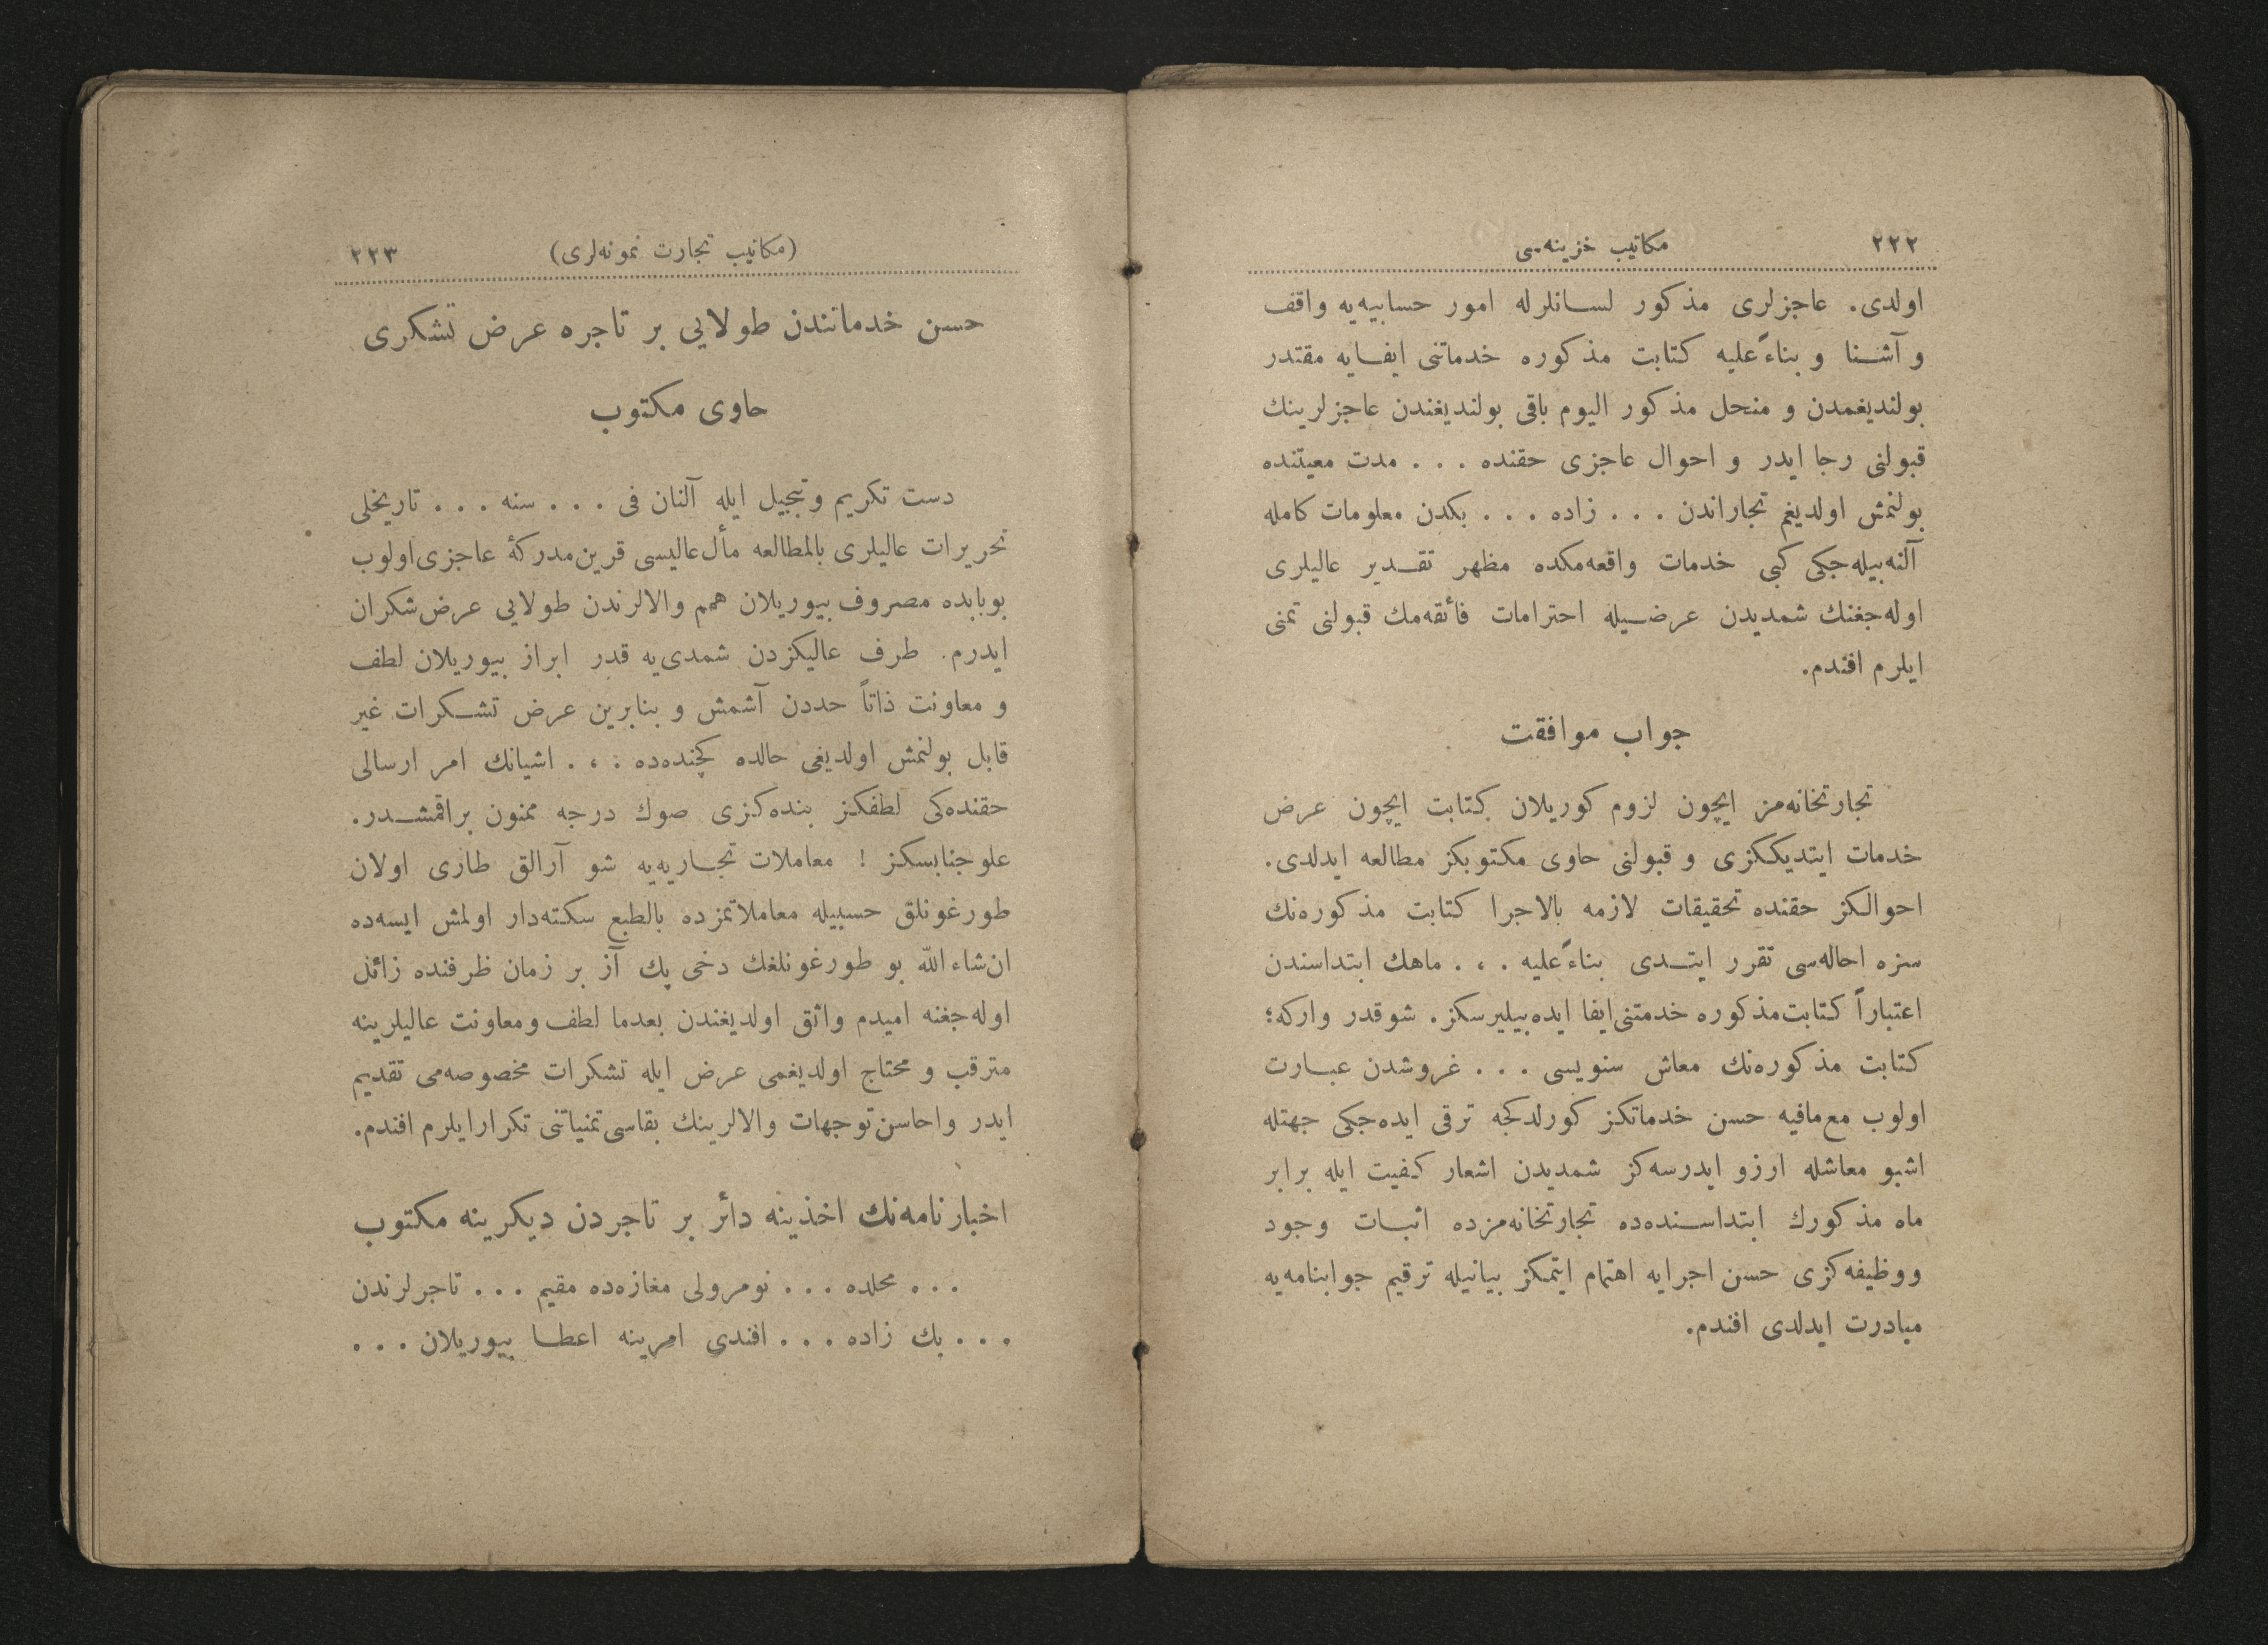 ٢٢٢
مكاتيب خزينه‌سی
اولدی. عاجزلری مذكور لسانلرله امور حسابيه‌يه واقف
و آشنا و بناءً عليه كتابت مذكوره خدماتنی ايفايه مقتدر
بولنديغمدن و منحل مذكور اليوم باقی بولنديغندن عاجزلرينك
قبولنی رجا ايدر و احوال عاجزی حقنده . . . مدت معيتنده
بولنمش اولديغم تجاراندن . . . زاده . . . بكدن معلومات كامله
آلنه‌بيله‌جكی كبی خدمات واقعه‌مكده مظهر تقدير عاليلری
اوله‌جغنك شمديدن عرضيله احترامات فائقه‌مك قبولنی تمنی
ايلرم افندم.
جواب موافقت
تجارتخانه‌مز ايچون لزوم كوريلان كتابت ايچون عرض
خدمات ايتديككزی و قبولنی حاوی مكتوبكز مطالعه ايدلدی.
احوالكز حقنده تحقيقات لازمه بالاجرا كتابت مذكوره‌نك
سزه احاله‌سی تقرر ايتدی بناءً عليه . . . ماهك ابتداسندن
اعتباراً كتابت مذكوره خدمتنی ايفا ايده‌بيليرسكز. شوقدر واركه؛
كتابت مذكوره‌نك معاش سنويسی . . . غروشدن عبارت
اولوب مع‌مافيه حسن خدماتكز كورلدكجه ترقی ايده‌جكی جهتله
اشبو معاشله ارزو ايدرسه‌كز شمديدن اشعار كيفيت ايله برابر
ماه مذكورك ابتداسنده‌ده تجارتخانه‌مزده اثبات وجود
ووظيفه‌كزی حسن اجرايه اهتمام ايتمكز بيانيله ترقيم جوابنامه‌يه
مبادرت ايدلدی افندم.
(مكاتيب تجارت نمونه‌لری)
٢٢٣
حسن خدماتندن طولايی بر تاجره عرض تشكری
حاوی مكتوب
دست تكريم وتبجيل ايله آلنان فی . . . سنه . . . تاريخلی
تحريرات عاليلری بالمطالعه مأل عاليسی قرين‌مدركهٔ عاجزی‌اولوب
بوبابده مصروف بيوريلان همم والالرندن طولايی عرض‌شكران
ايدرم. طرف عاليكزدن شمدی‌يه قدر ابراز بيوريلان لطف
و معاونت ذاتاً حددن آشمش و بنابرين عرض تشكرات غير
قابل بولنمش اولديغی حالده كچنده‌ده . . . اشيانك امر ارسالی
حقنده‌كی لطفكز بنده‌كزی صوك درجه ممنون براقمشدر.
علوجنابسكز ! معاملات تجاريه‌يه شو آرالق طاری اولان
طورغونلق حسبيله معاملاتمزده بالطبع سكته‌دار اولمش ايسه‌ده
ان‌شاءالله بو طورغونلغك دخی پك آز بر زمان ظرفنده زائل
اوله‌جغنه اميدم واثق اولديغندن بعدما لطف ومعاونت عاليلرينه
مترقب و محتاج اولديغمی عرض ايله تشكرات مخصوصه‌می تقديم
ايدر واحاسن‌توجهات والالرينك بقاسی‌تمنياتنی تكرارايلرم افندم.
اخبارنامه‌نك اخذينه دائر بر تاجردن ديكرينه مكتوب
. . . محلده . . . نومرولی مغازه‌ده مقيم . . . تاجرلرندن
. . . بك زاده . . . افندی امرينه اعطا بيوريلان . . .